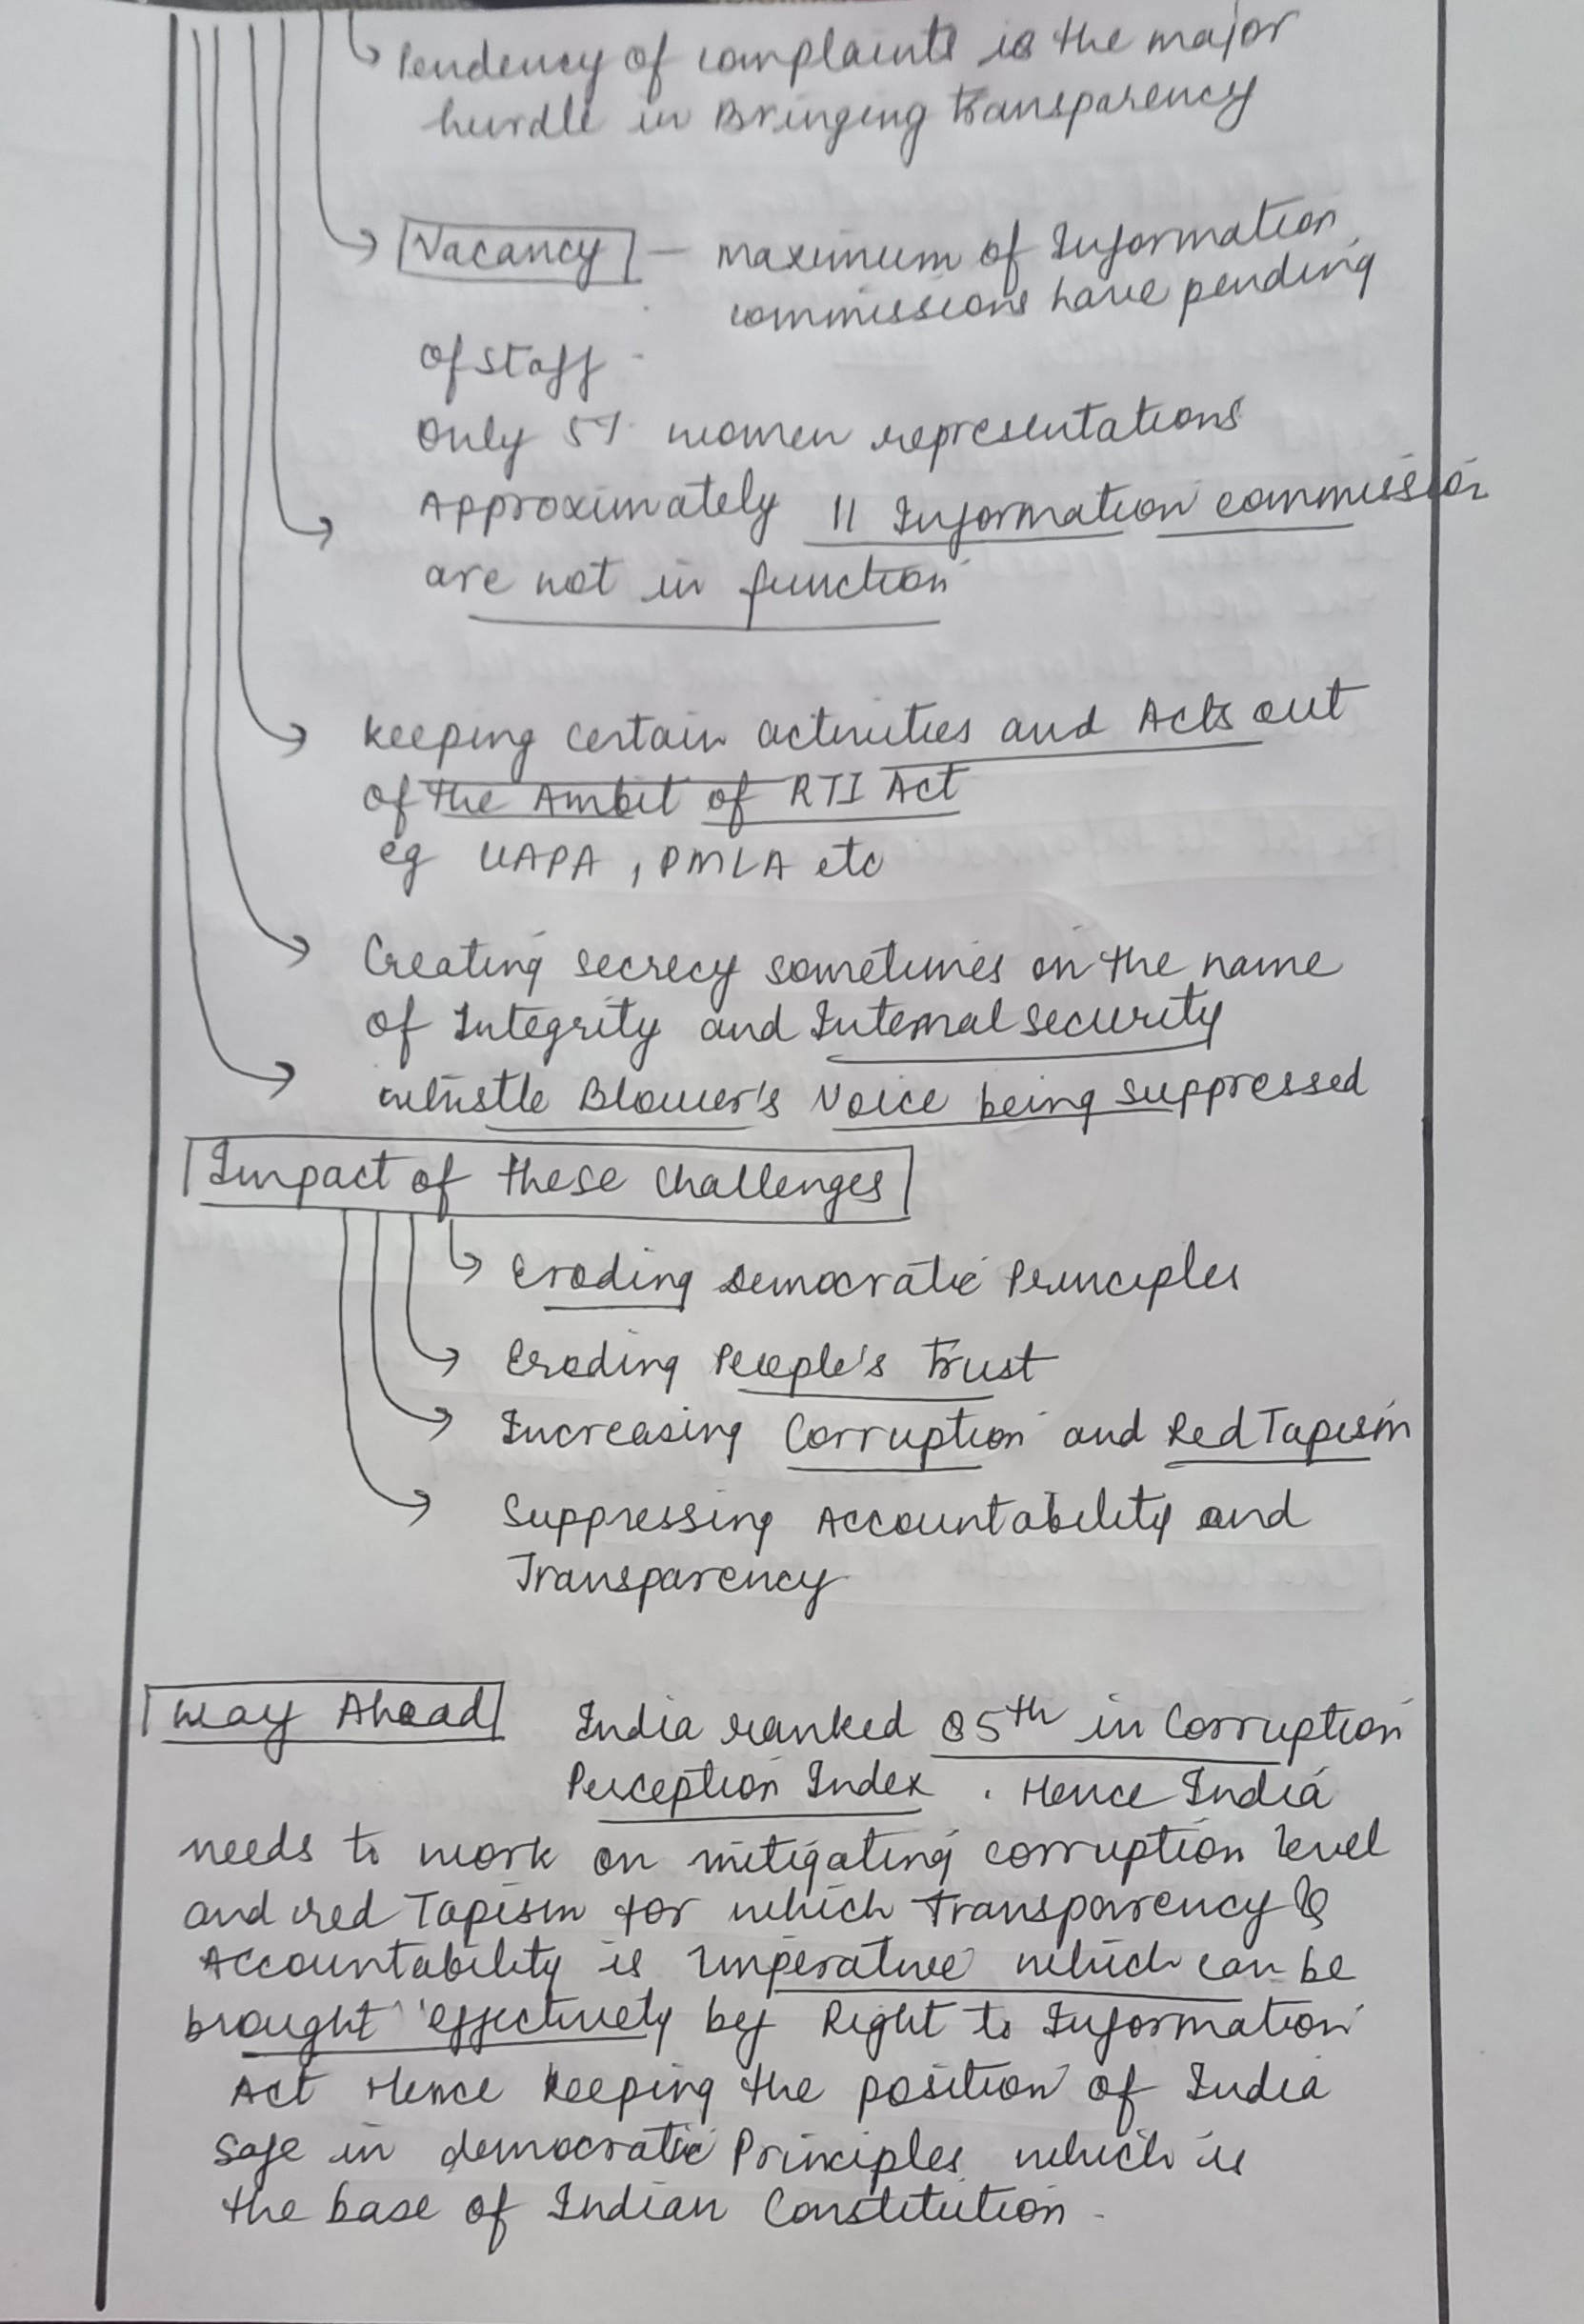 Pendency of complaints is the major
hurdle in Bringing transparency
Vacancy - maximum of Information
commissions have pending
of staff
Only 5% women representations
Approximately 11 Information commission
are not in function
keeping certain activities and Acts out
of the Ambit of RTI Act
eg UAPA , PMLA etc
Creating secrecy sometimes on the name
of Integrity and Internal security
whistle Blower's Voice being suppressed
Impact of these challenges
Eroding Democratic Principles
Eroding People's trust
Increasing Corruption and Red Tapism
Suppressing Accountability and
Transparency
Way Ahead India ranked 85th in Corruption
Perception Index . Hence India
needs to work on mitigating corruption level
and red Tapism for which transparency &
Accountability is imperative which can be
brought effectively by Right to Information
Act Hence keeping the position of India
safe in democratic Principles which is
the base of Indian Constitution .